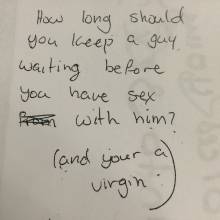 How long should
you keep a guy
waiting before
you have sex
with him?
(and your a
virgin)